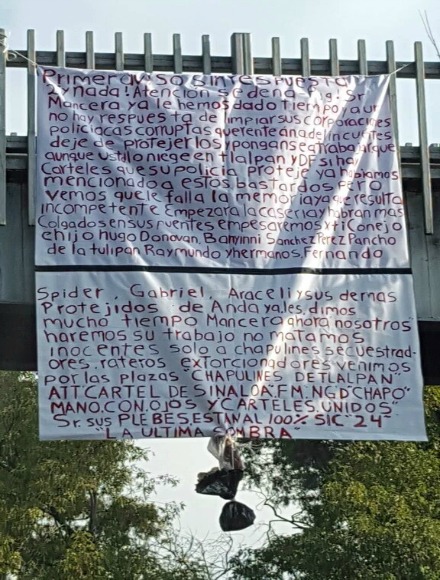 Primer aviso sintespuesta
nada! Atencion sedena Pg! Sr
Mancera ya le hemos dado Tiempo y aun
no hay respuesta de limpiar sus corporaciones
policiacas corruptas querentean a delincuentes
deje de protejer los y ponganse a trabajar que
aunque ustd lo niege en tlalpan y DF si hay
Carteles que su policia proteje ya habiamos
mencionado a estos bastardos pero
vemos que le falla la memoria y a que resulta
incompetente Empezara a caseria y habran mas
Colgados en sus puentes empesaremos x ti Conejo
e hijo Hugo Donovan, Banyinni Sanchez Perez Pancho
de la tulipan Raymundo y hermanos, Fernando
Spider, Gabriel, Araceli y sus demas
Protejidos de Anda ya les dimos
mucho tiempo Mancera ahora nosotros
haremos su trabajo no matamos
inocentes solo a chapulines secuestrad-
ores, rateros extorcionadores venimos
por las plazas "CHAPULINES DE TLALPAN"
ATT CARTEL DE SINALOA. F.M. NGD "CHAPO"
MANO.CON.OJOS "CARTELES.UNIDOS"
Sr. sus PLEBES. ESTAN AL 100% SIC "24"
"LA ULTIMA SOMBRA"